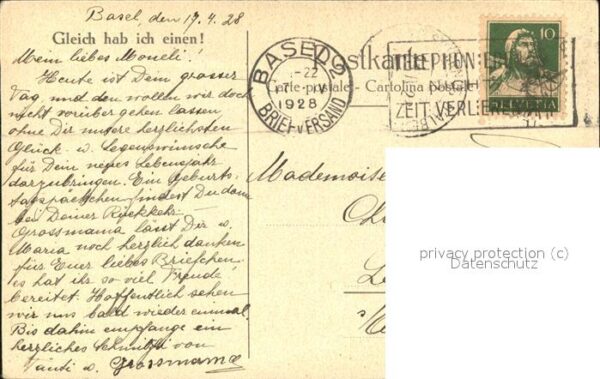 Basel, den 17.4.28
Gleich hab ich einen!
Mein liebes Moneli!
Heute ist Dein grosser
Tag, und den wollen wir doch
nicht vorüber gehen lassen
ohne Dir unsere herzlichsten
Glück- u. Segenswünsche
für Dein neues Lebensjahr
darzubringen. Ein Geburts-
tagspäckchen findest Du dann
bei Deiner Rückkehr.
Grossmama lässt Dir u.
Maria noch herzlich danken
für Euer liebes Briefchen,
es hat ihr so viel Freude
bereitet. Hoffentlich sehen
wir uns bald wieder einmal.
Bis dahin empfange ein
herzliches Schmützi von
Tanti u. Grossmama
Postkarte
Carte postale - Cartolina postale
BASEL 2
1928
BRIEF-VERSAND
TELEPHON
ZEIT VERLIEREN
10
HELVETIA
Mademoiselle
privacy protection (c)
Datenschutz